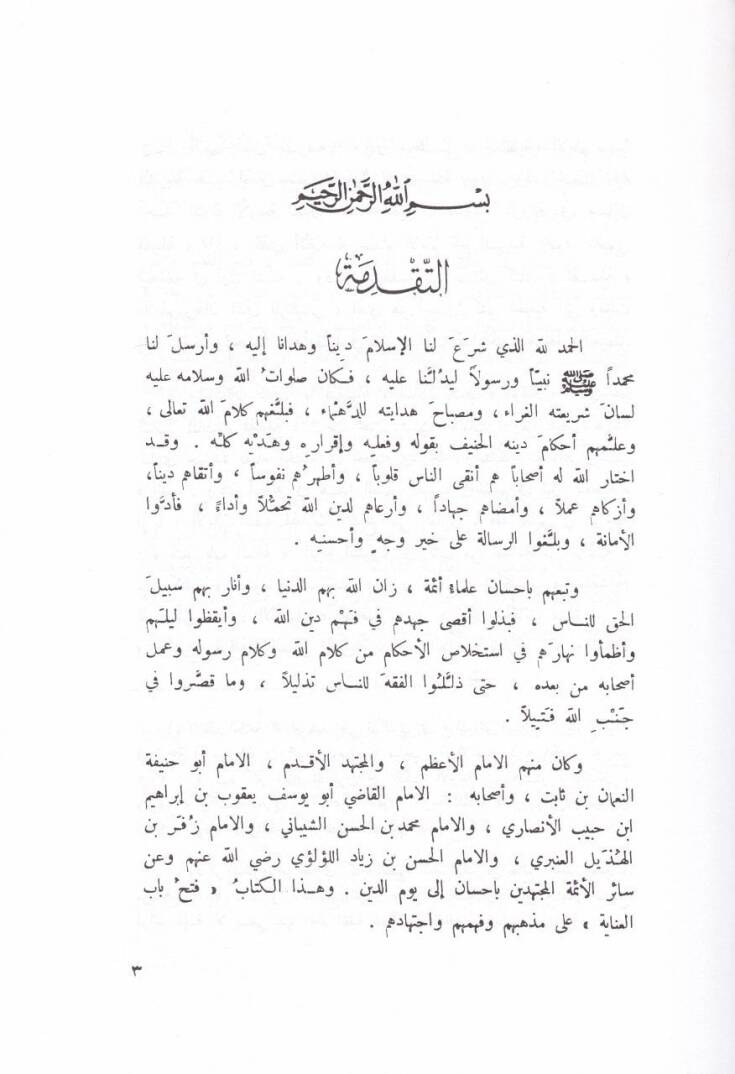 بِسْمِ اللهِ الرَّحْمٰنِ الرَّحِيْمِ
التَّقْدِمَة
الحمد لله الذي شرَعَ لنا الإسلامَ دِيناً وهدانا إليه ، وأرسلَ لنا
محمداً ﷺ نبيّاً ورسولاً ليدُلَّنا عليه ، فكان صلواتُ الله وسلامه عليه
لسانَ شريعته الغراء ، ومصباحَ هدايته للدَّهْماء ، فبلَّغهم كلامَ الله تعالى ،
وعلَّمهم أحكامَ دينه الحنيف بقوله وفعلِه وإقرارِه وهَدْيِه كلِّه . وقد
اختار الله له أصحاباً هم أنقى الناس قلوباً ، وأطهرُهم نفوساً ، وأتقاهم ديناً،
وأزكاهم عملاً ، وأمضاهم جهاداً ، وأرعاهم لدين الله تحمُّلاً وأداءً ، فأدَّوا
الأمانة ، وبلَّغوا الرسالة على خير وجهٍ وأحسنِه .
وتبعهم بإحسان علماءُ أئمة ، زان الله بهم الدنيا ، وأنار بهم سبيلَ
الحق للناس ، فبذلوا أقصى جهدهم في فَهْم دين الله ، وأيقظوا ليلَهم
وأظمأوا نهارَهم في استخلاص الأحكام من كلام الله وكلام رسوله وعمل
أصحابه من بعده ، حتى ذلَّلُوا الفقهَ للناس تذليلاً ، وما قصَّروا في
جَنْبِ الله فَتيلاً .
وكان منهم الامام الأعظم ، والمجتهد الأقدم ، الامام أبو حنيفة
النعمان بن ثابت ، وأصحابه : الامام القاضي أبو يوسف يعقوب بن إبراهيم
ابن حبيب الأنصاري ، والامام محمد بن الحسن الشيباني ، والامام زُفَر بن
الهُذَيل العنبري ، والامام الحسن بن زياد اللؤلؤي رضي الله عنهم وعن
سائر الأئمة المجتهدين بإحسان إلى يوم الدين . وهذا الكتابُ « فتحُ باب
العناية » على مذهبهم وفهمهم واجتهادهم .
٣